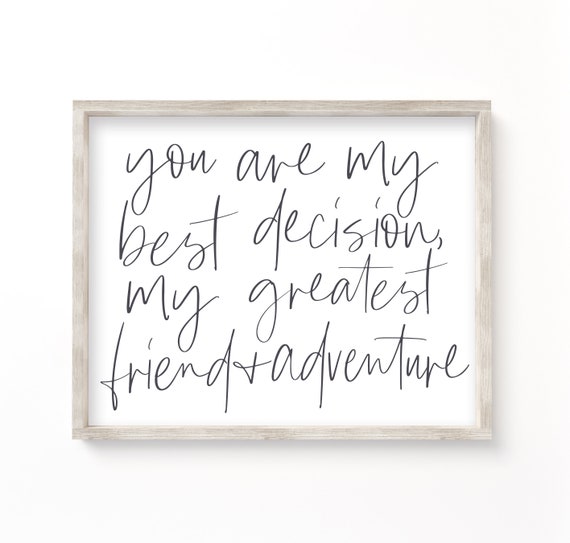 you are my
best decision,
my greatest
friend + adventure